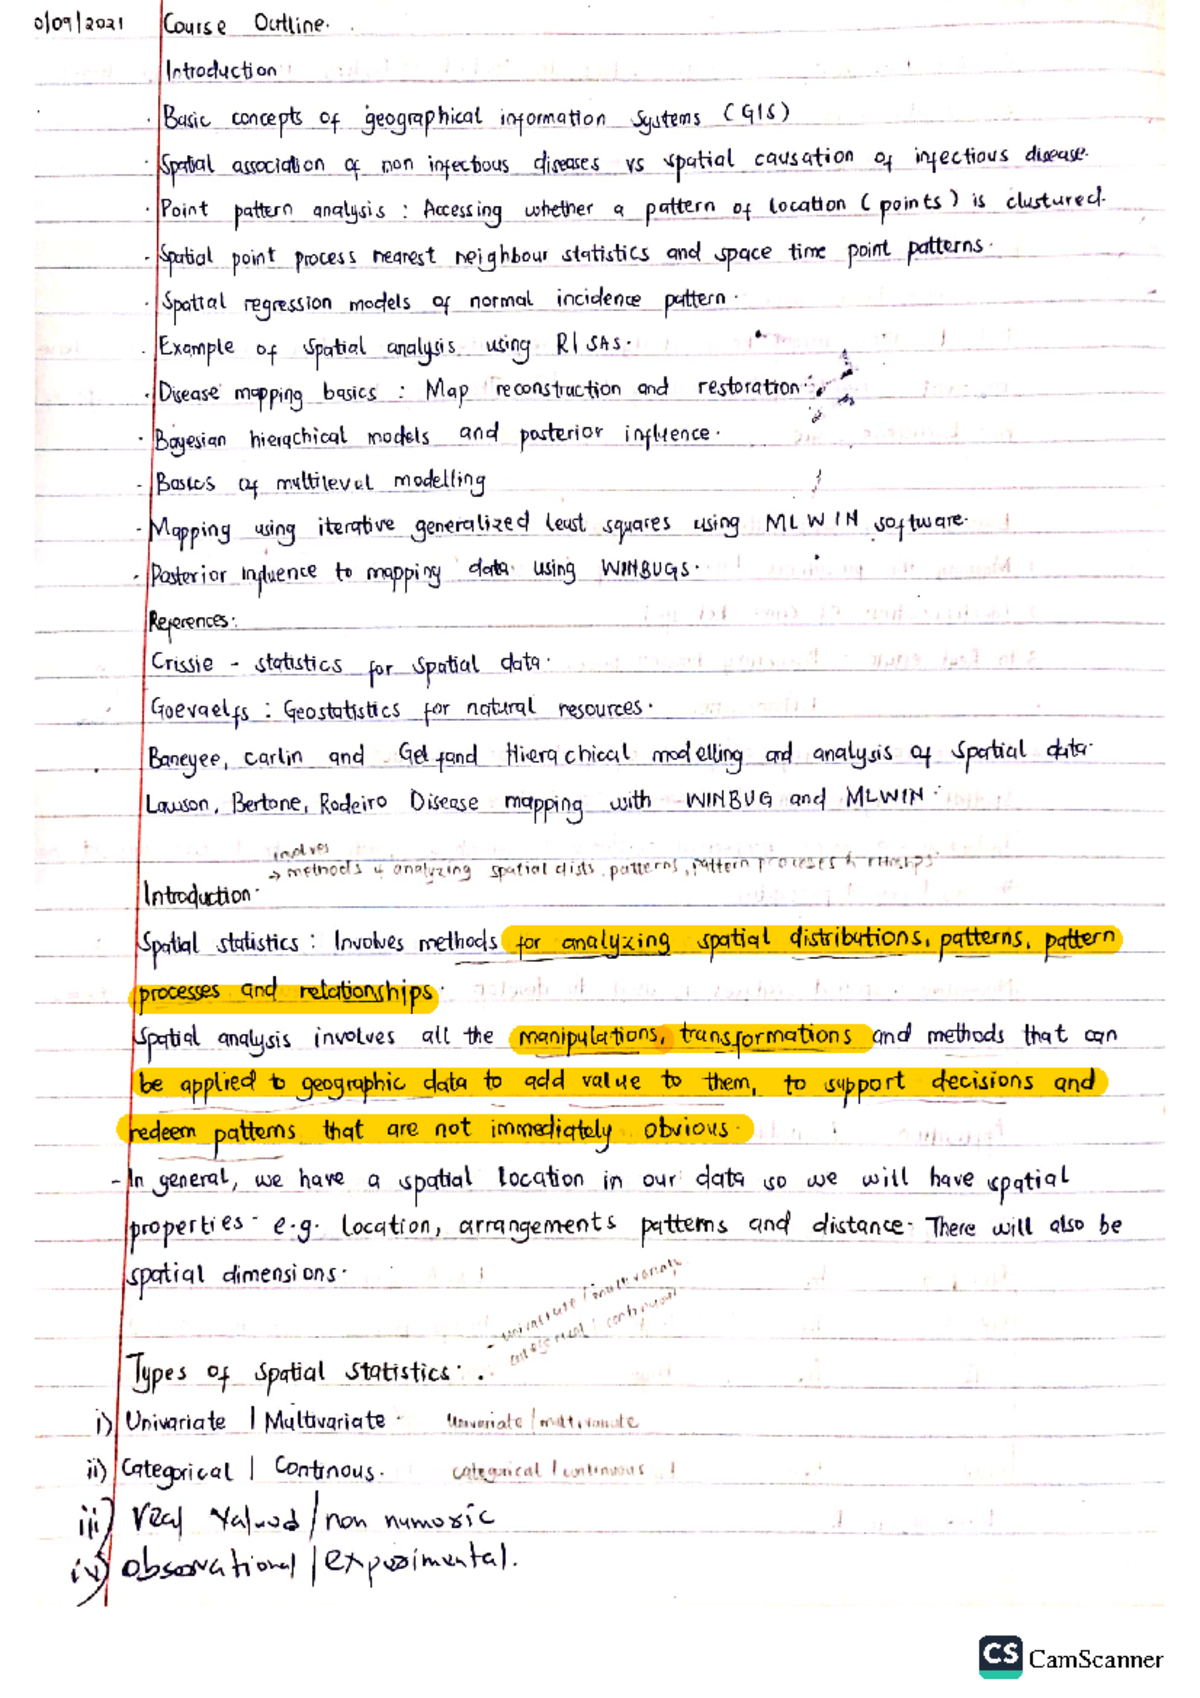 0/09/2021 Course Outline.
Introduction
· Basic concepts of geographical information systems (GIS)
· Spatial association of non infectious diseases vs spatial causation of infectious disease.
· Point pattern analysis : Accessing whether a pattern of location (points) is clustured.
· Spatial point process nearest neighbour statistics and space time point patterns.
· Spatial regression models of normal incidence pattern.
· Example of spatial analysis using R/SAS.
· Disease mapping basics : Map reconstruction and restoration.
· Bayesian hierachical models and posterior influence.
- Basics of multilevel modelling
- Mapping using iterative generalized least squares using MLWIN software.
· Posterior influence to mapping data using WINBUGS.
References:
Crissie - statistics for spatial data.
Goevaelfs : Geostatistics for natural resources.
Baneyee, carlin and Gelfand Hierachical modelling and analysis of spatial data.
Lawson, Bertone, Rodeiro Disease mapping with WINBUG and MLWIN.
involves
→ methods of analyzing spatial dists, patterns, pattern processes & r/tnships.
Introduction.
Spatial statistics : Involves methods for analyzing spatial distributions, patterns, pattern
processes and relationships.
Spatial analysis involves all the manipulations, transformations and methods that can
be applied to geographic data to add value to them, to support decisions and
redeem patterns that are not immediately obvious.
- In general, we have a spatial location in our data so we will have spatial
properties. e.g. location, arrangements patterns and distance. There will also be
spatial dimensions.
- univariate / multivariate
categorical / continuous
Types of spatial statistics.
i) Univariate / Multivariate. Univariate / multivariate
ii) Categorical / Continous. categorical / continuous
iii) real valued / non numeric
iv) observational / experimental.
CS CamScanner